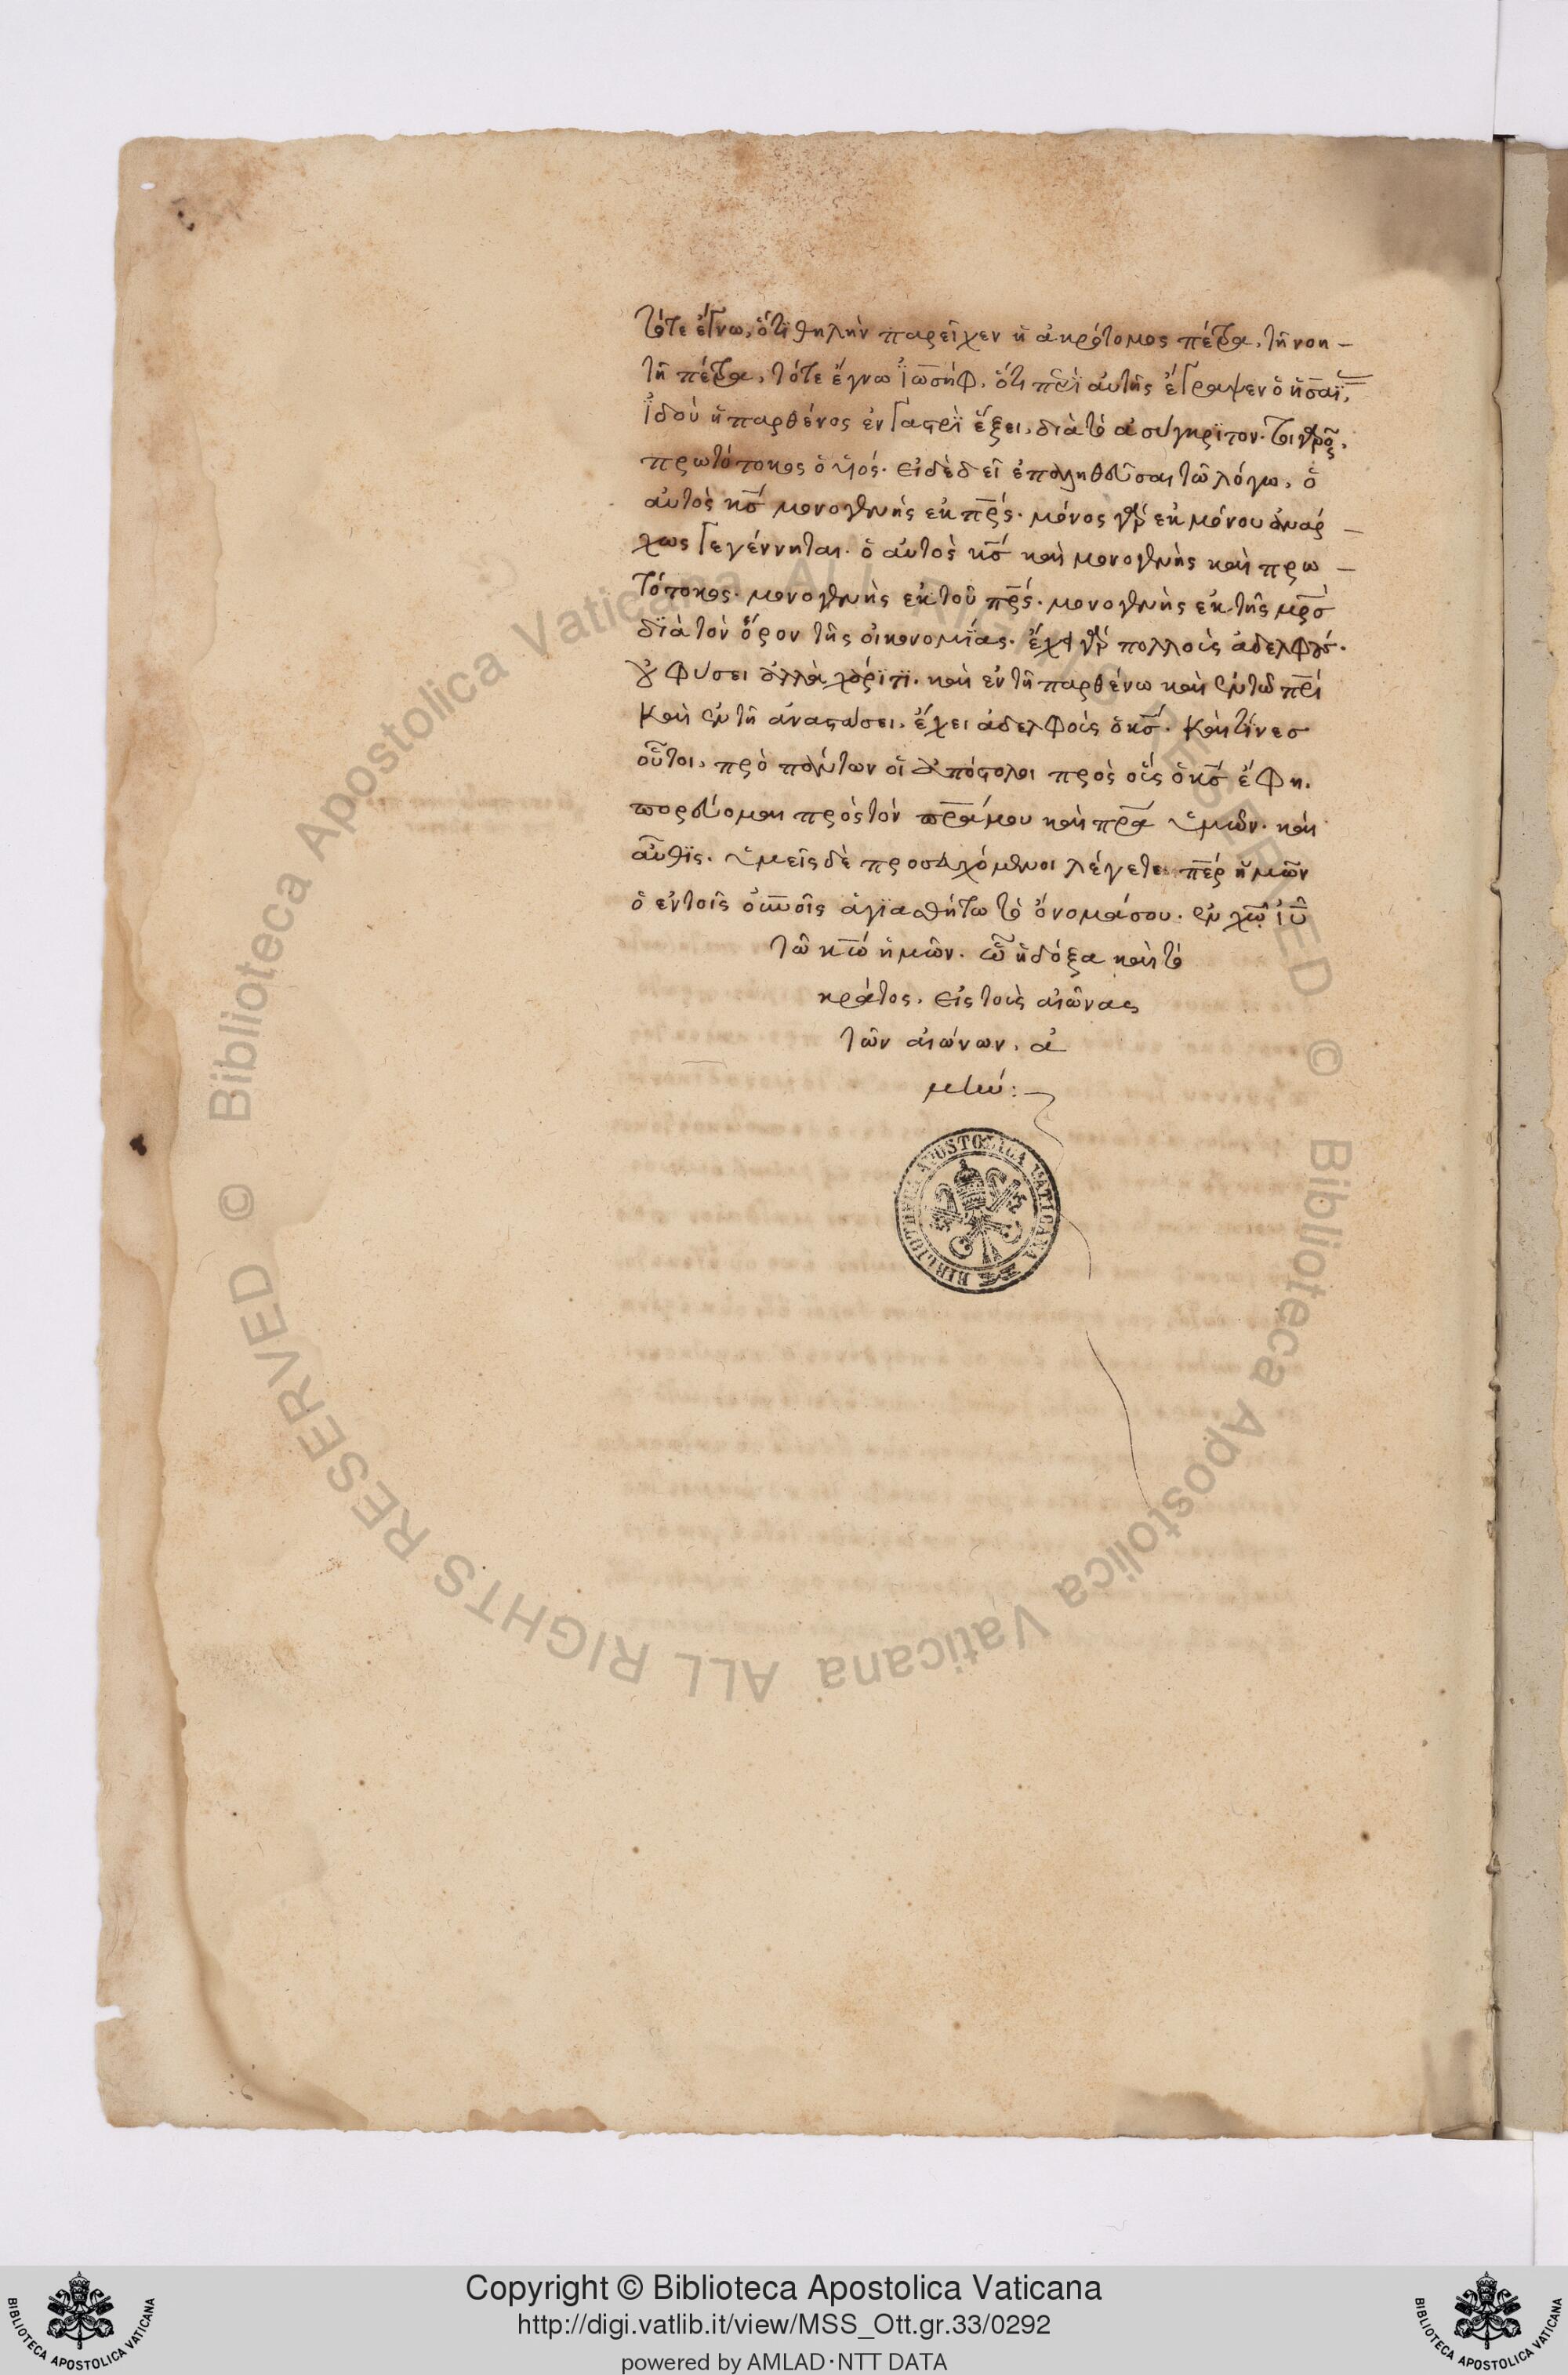 τότε ἔγνω, ὅτι θηλὴν παρεῖχεν ἡ ἀκρότομος πέτρα, τῆ νοη-
τῆ πέτρα, τότε ἔγνω ϊωσὴφ, ὅτι πρϊ αὐτῆς ἔγραψεν ὁ ησαϊ,
ϊδοὺ ἡ παρθένος ἐν γαστρϊ ἕξει, διὰ τὸ ἀσύγκρϊτον.
πρωτότοκος ὁ υἱός. εἰ δὲ δεῖ ἐπακολουθῆσαι τῶ λόγω, ὁ
αὐτὸς κς μονογενὴς ἐκ πρς. μόνος γὰρ ἐκ μόνου ἀνάρ-
χως γεγέννηται. ὁ αὐτὸς κς καὶ μονογενὴς καὶ πρω-
τότοκος. μονογενὴς ἐκ τοῦ πρς. μονογενὴς ἐκ τῆς μρσ
διὰ τὸν ὅρον τῆς οἰκονομϊας. ἔχει γὰρ πολλοὺς ἀδελφούς.
οὐ φύσει ἀλλὰ χάριτι. καὶ ἐν τῆ παρθένω καὶ ἐν τῶ πρι
καὶ ἐν τῆ ἀναστάσει. ἔχει ἀδελφοὺς ὁ κς. καὶ τίνεσ
οὗτοι, πρὸ πάντων οἱ ἀπόστολοι πρὸς οὓς ὁ κς ἔφη.
πορεύομαι πρὸς τὸν πρα μου καὶ πρα ὑμῶν. καὶ
αὖθϊς. ὑμεῖς δὲ προσευχόμενοι λέγετε περ ἡμῶν
ὁ ἐν τοῖς οὐνοῖς ἁγϊασθήτω τὸ ὄνομά σου. ἐν χω ἰυ
τῶ κω ἡμῶν. ὧ ἡ δόξα καὶ τὸ
κράτος, εἰς τοὺς αἰῶνας
τῶν αἰώνων. ἀ
μήν:
BIBLIOTHECA APOSTOLICA VATICANA
© Biblioteca Apostolica Vaticana ALL RIGHTS RESERVED
© Biblioteca Apostolica Vaticana ALL RIGHTS RESERVED
Copyright © Biblioteca Apostolica Vaticana
http://digi.vatlib.it/view/MSS_Ott.gr.33/0292
powered by AMLAD·NTT DATA
BIBLIOTECA APOSTOLICA VATICANA
BIBLIOTECA APOSTOLICA VATICANA